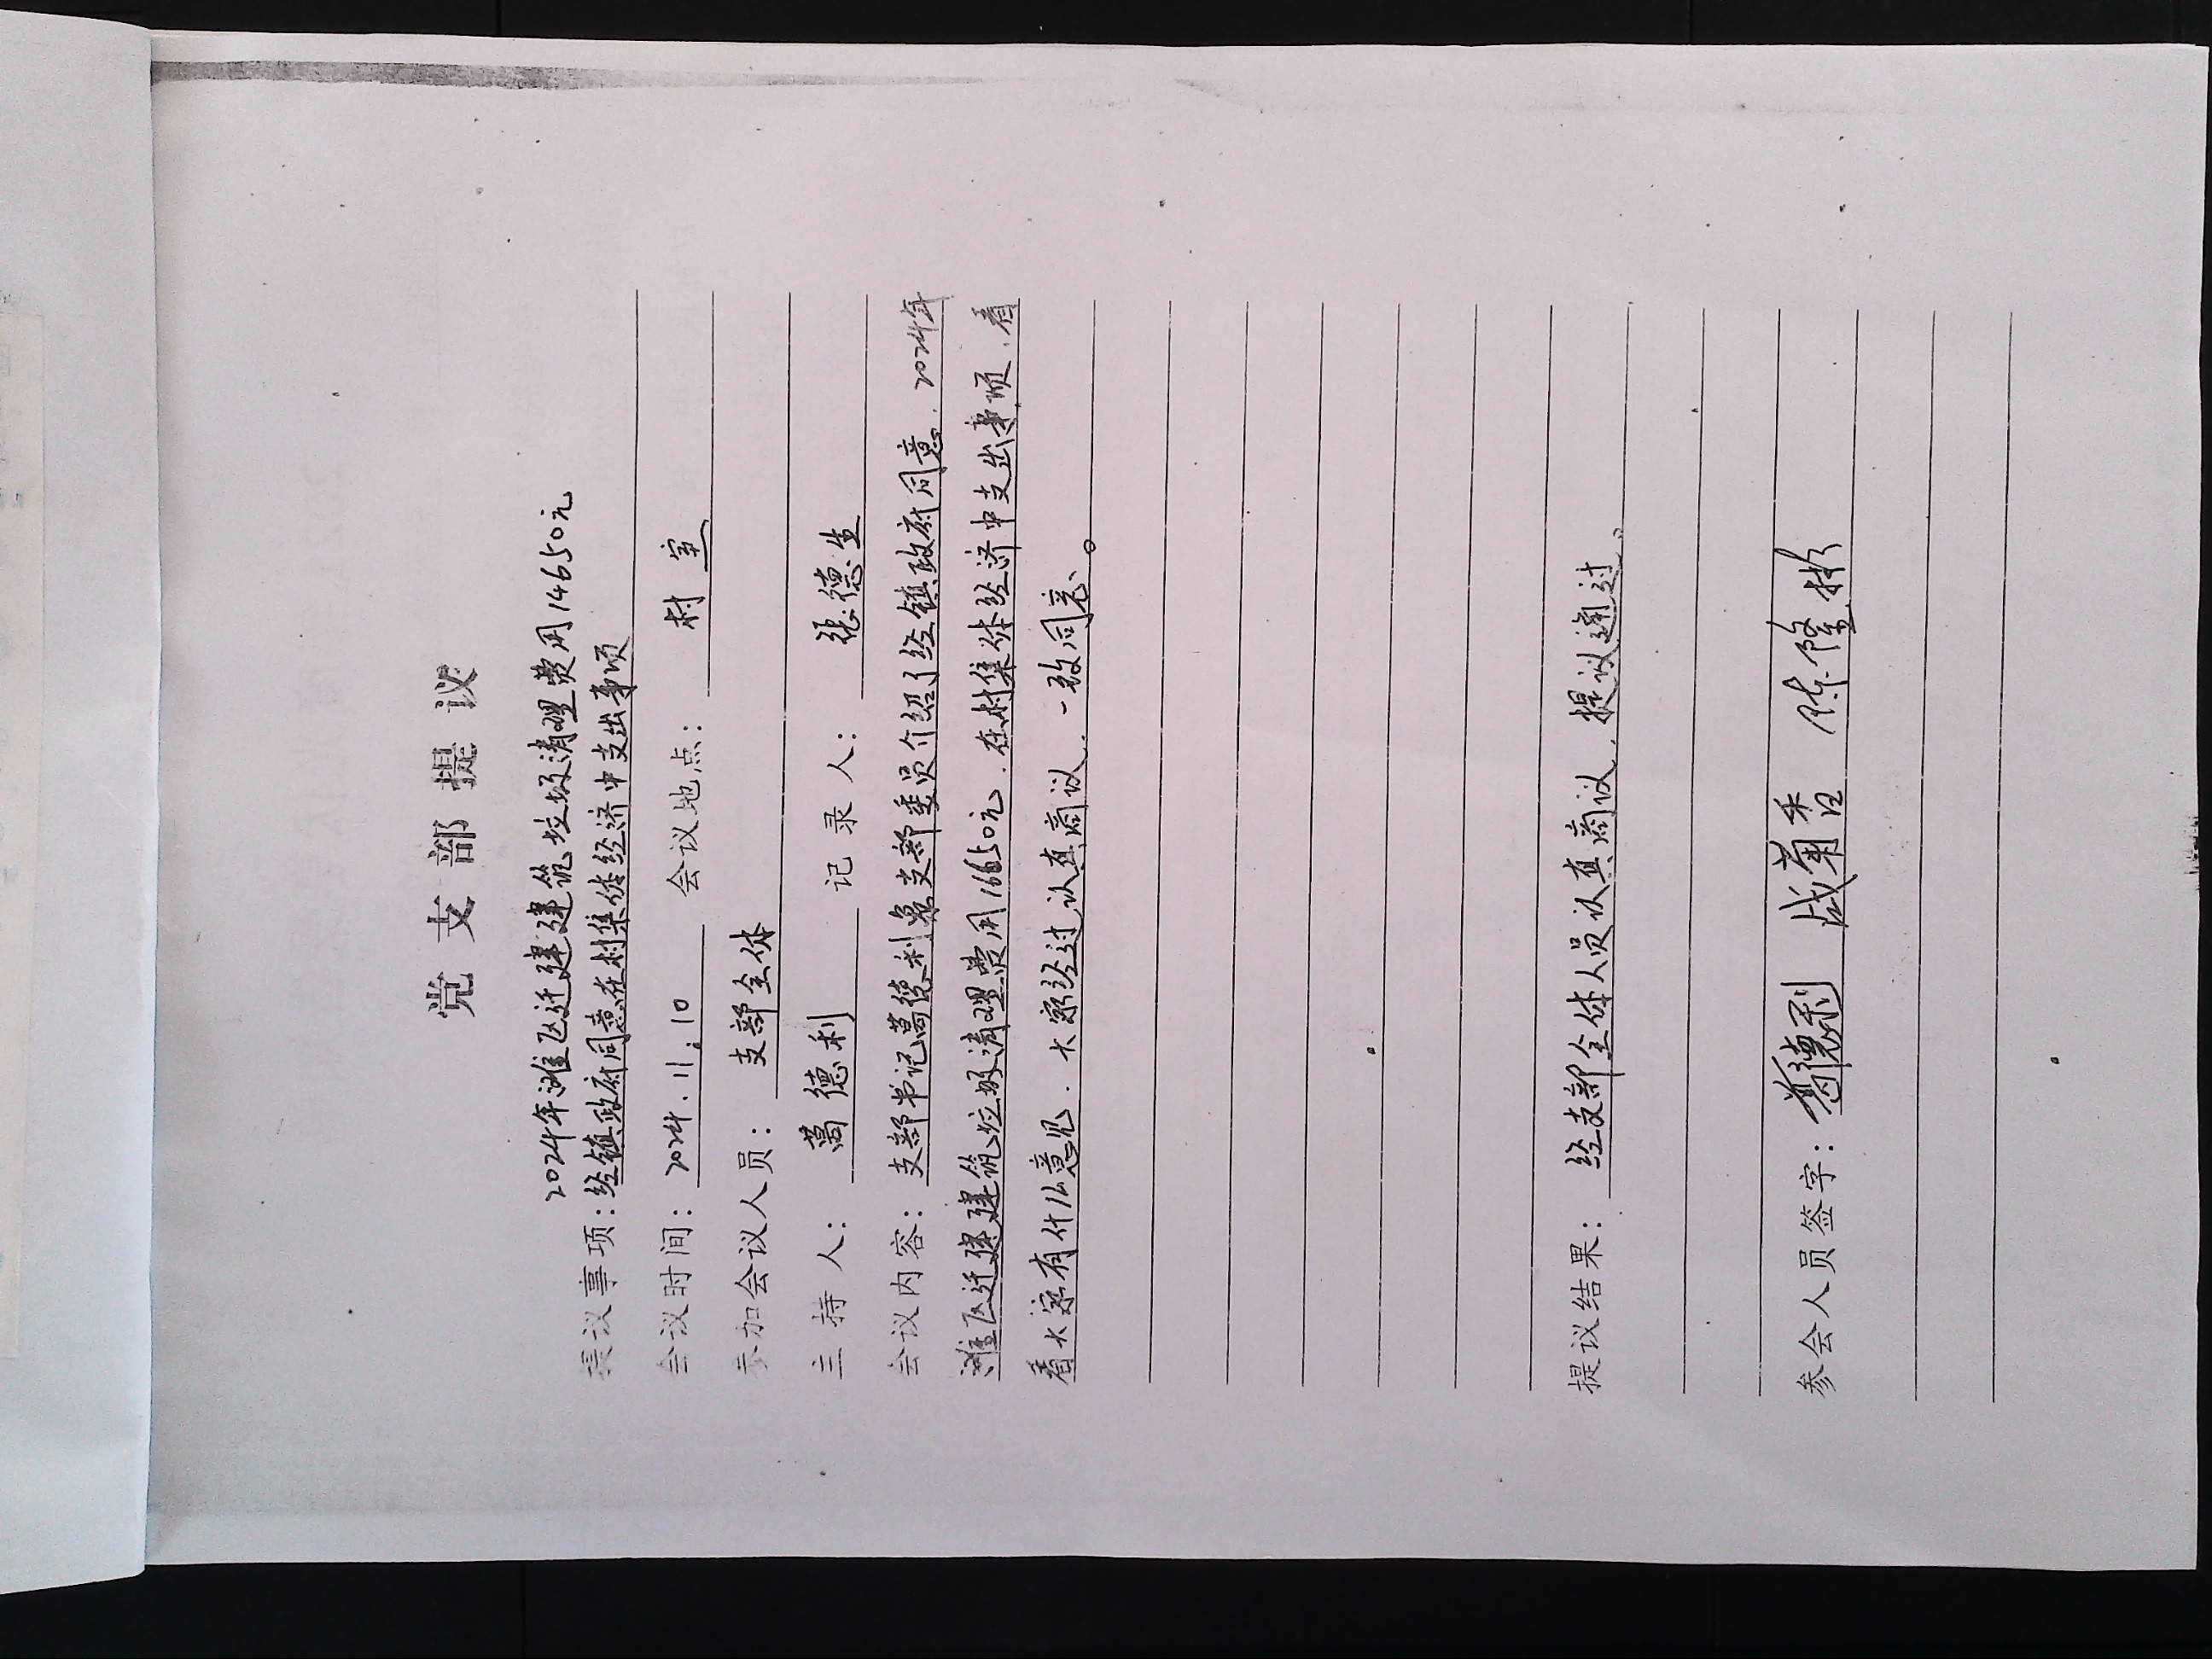 党支部提议
2024年滩区迁建建筑垃圾清理费用146500元
提议事项：经镇政府同意在村集体经济中支出事项
会议时间：2024.11.10 会议地点：村室
参加会议人员：支部全体
主持人：葛德利 记录人：张德生
会议内容：支部书记葛德利向支部委员介绍了经镇政府同意，2024年
滩区迁建建筑垃圾清理费用16650元，在村集体经济中支出事项，看
看大家有什么意见，大家经过认真商议，一致同意。
提议结果：经支部全体人员认真商议，提议通过。
参会人员签字：葛德利 战菊香